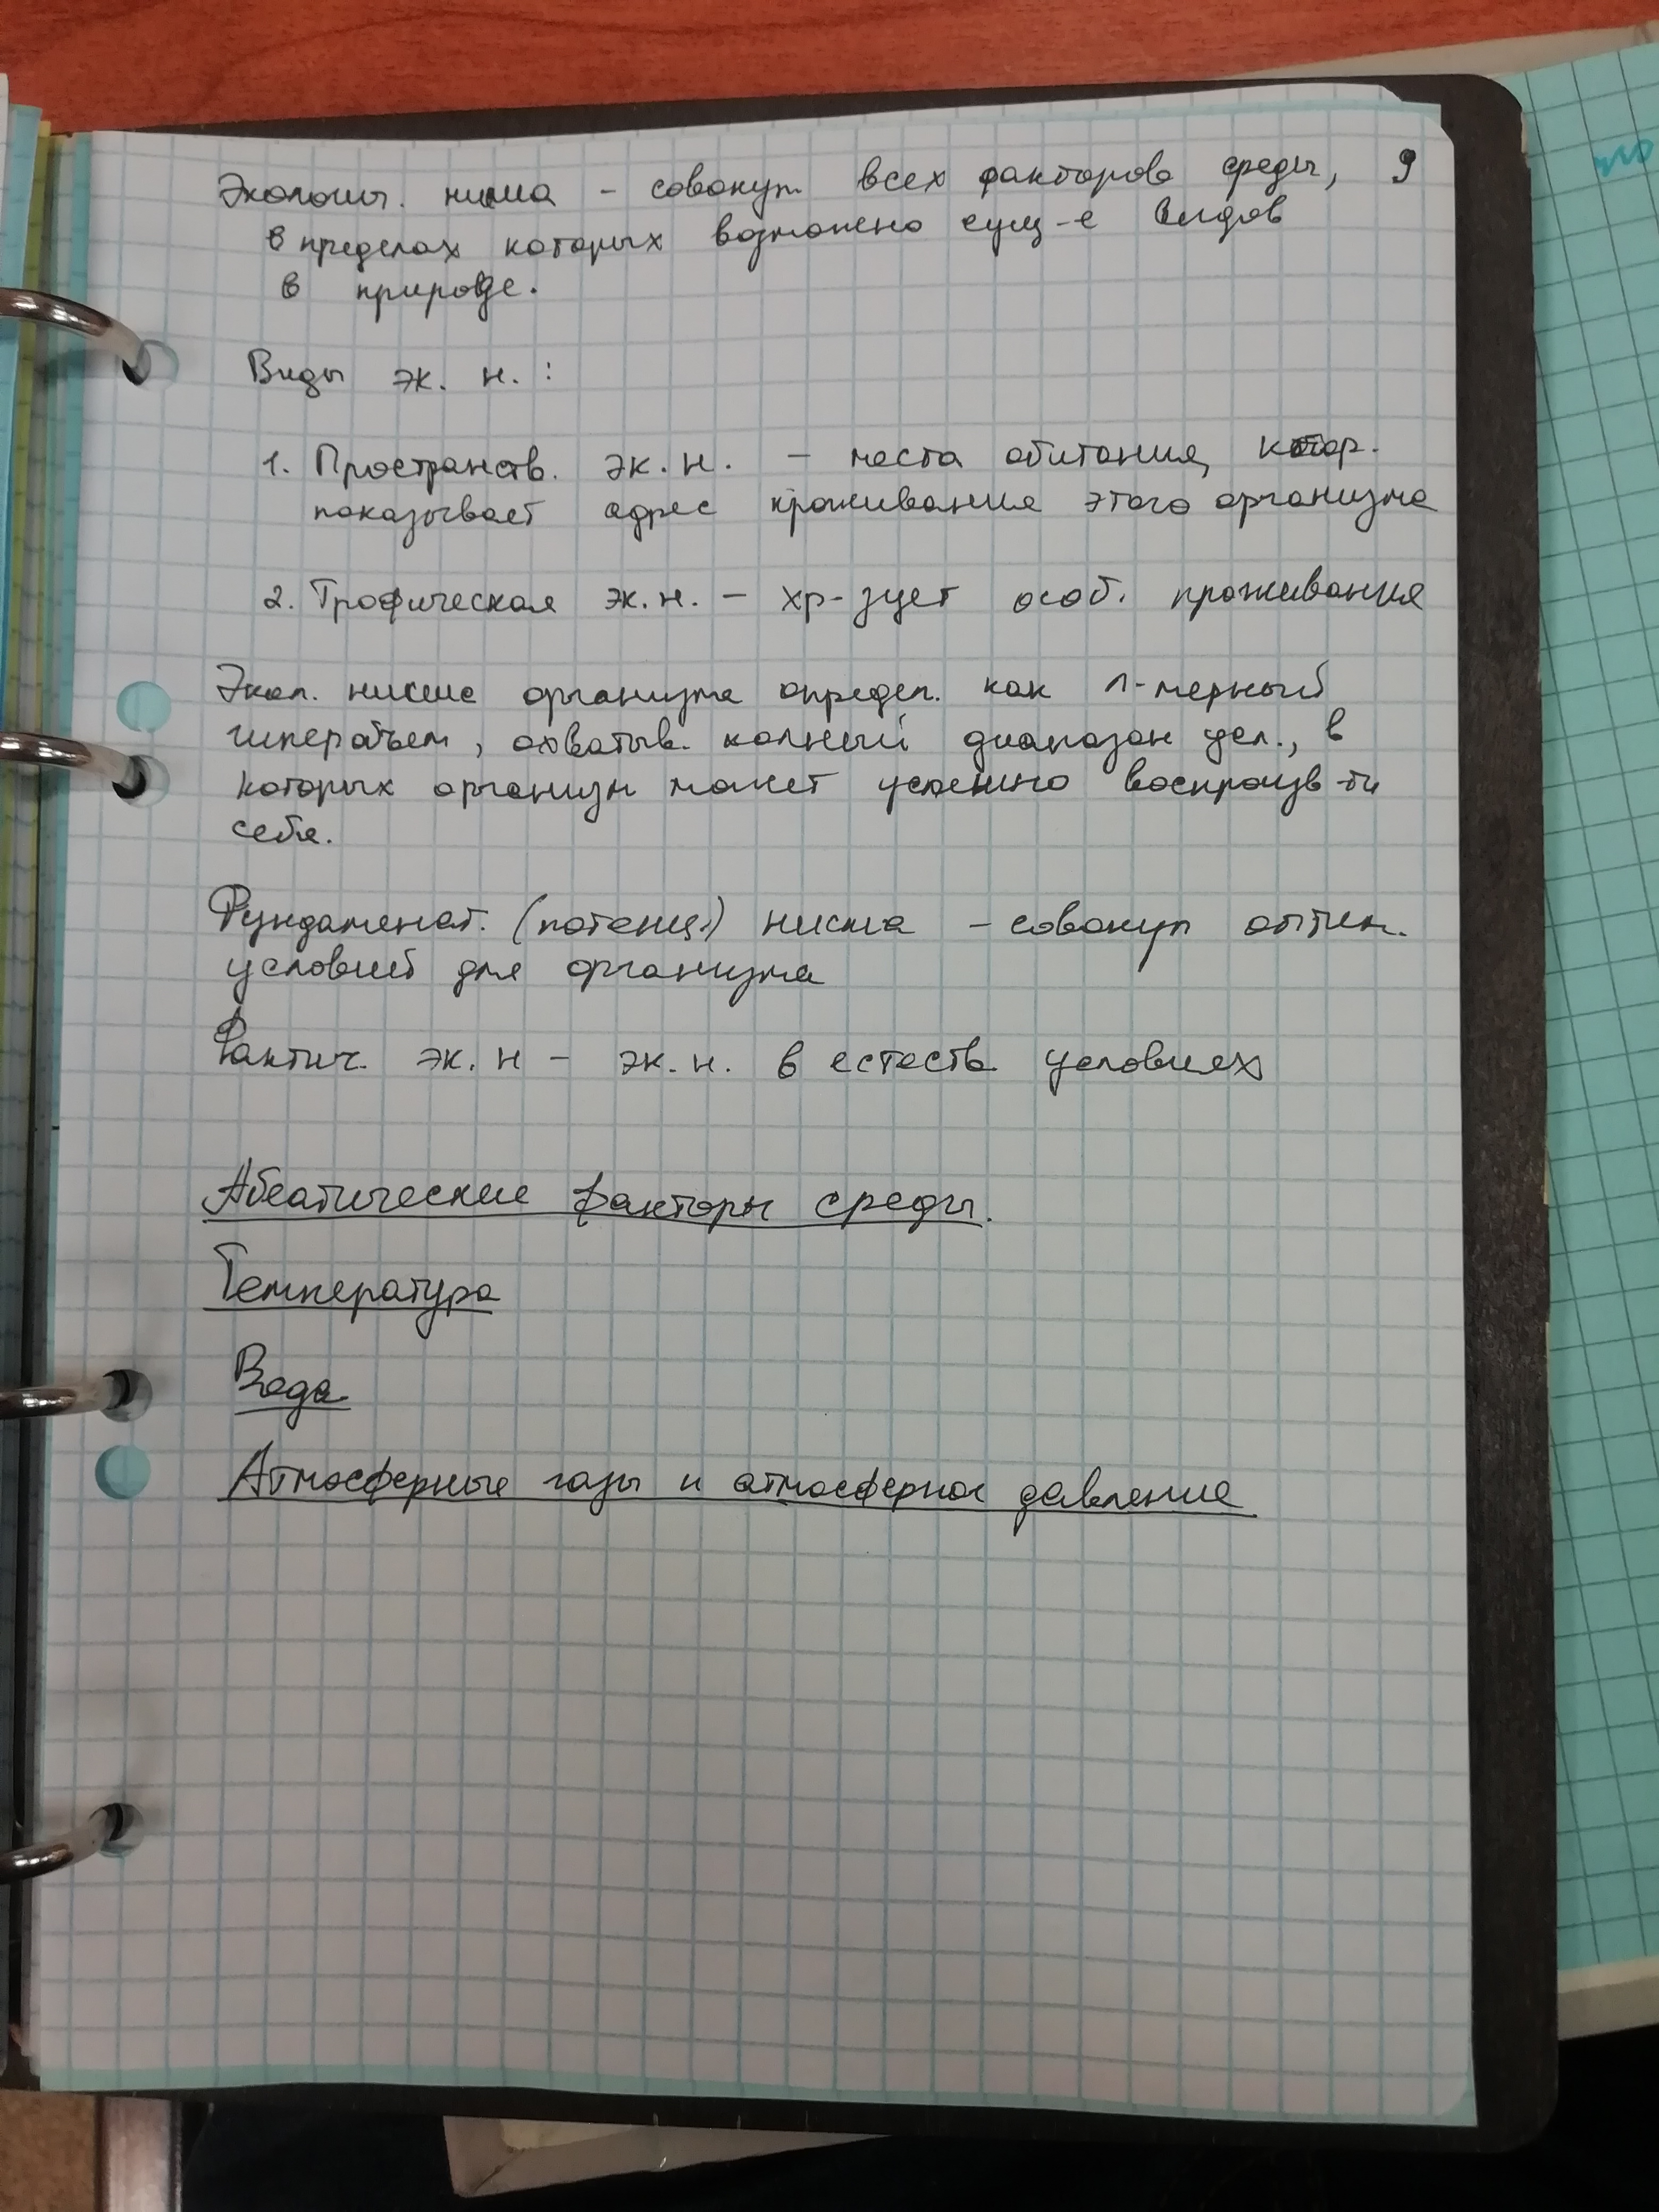 Экологич. ниша – совокуп. всех факторов среды, 9
в пределах которых возможно сущ-е видов
в природе.
Виды эк. н. :
1. Пространств. эк. н. – места обитания, котор.
показывает адрес проживания этого организма
2. Трофическая эк. н. – хр-зует особ. проживания
Экол. нише организма определ. как n-мерный
гиперобъем, охватыв. полный диапазон усл., в
которых организм может успешно воспроизв-ти
себя.
Фундаменат. (потенц.) ниша – совокуп оптим.
условий для организма
Фактич. эк. н – эк. н. в естеств. условиях
Абеотические факторы среды.
Температура
Вода
Атмосферные газы и атмосферное давление